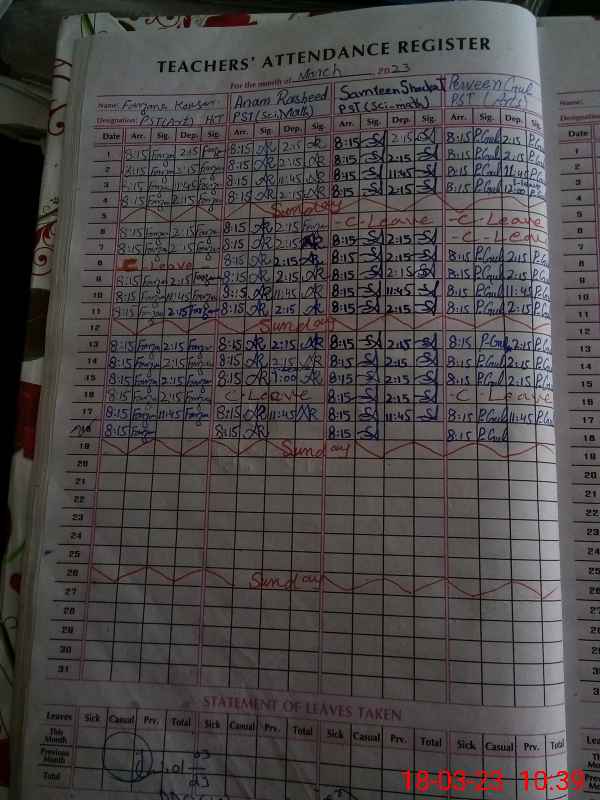 TEACHERS' ATTENDANCE REGISTER
For the month of March 2023
Name: Farzana Kousar Anam Rasheed Samreen Shaukat Perveen Gul Name:
Designation: PST(Arts) HT PST(Sci,Math) PST(Sci-math) PST (Arts) Designation
Date Arr. Sig. Dep. Sig. Arr. Sig. Dep. Sig. Arr. Sig. Dep. Sig. Arr. Sig. Dep. Sig. Date
1 8:15 Farzan 2:15 Farzan 8:15 AR 2:15 AR 8:15 2:15 8:15 P.Gul 2:15 P.Gul 1
2 8:15 Farzan 2:15 Farzan 8:15 AR 2:15 AR 8:15 2:15 8:15 P.Gul 2:15 P.Gul 2
3 8:15 Farzan 11:45 Farzan 8:15 AR 11:45 AR 8:15 11:45 8:15 P.Gul 11:45 P.Gul 3
4 8:15 Farzan 2:15 Farzan 8:15 AR 2:15 AR 8:15 2:15 8:15 P.Gul 12:00 P.Gul 4
5 Sunday 5
6 8:15 Farzan 2:15 Farzan 8:15 AR 2:15 -C-Leave -C-Leave 6
7 8:15 Farzan 2:15 Farzan 8:15 AR 2:15 AR 8:15 2:15 -C-Leave 7
8 C-Leave 8:15 AR 2:15 AR 8:15 2:15 8:15 P.Gul 2:15 P.Gul 8
9 8:15 Farzan 2:15 Farzan 8:15 AR 2:15 AR 8:15 2:15 8:15 P.Gul 2:15 P.Gul 9
10 8:15 Farzan 11:45 Farzan 8:15 AR 11:45 AR 8:15 11:45 8:15 P.Gul 11:45 P.Gul 10
11 8:15 Farzan 2:15 Farzan 8:15 AR 2:15 AR 8:15 2:15 8:15 P.Gul 2:15 P.Gul 11
12 Sunday 12
13 8:15 Farzan 2:15 Farzan 8:15 AR 2:15 AR 8:15 2:15 8:15 P.Gul 2:15 P.Gul 13
14 8:15 Farzan 2:15 Farzan 8:15 AR 2:15 AR 8:15 2:15 8:15 P.Gul 2:15 P.Gul 14
15 8:15 Farzan 2:15 Farzan 8:15 AR 1:00 AR 8:15 2:15 8:15 P.Gul 2:15 P.Gul 15
16 8:15 Farzan 2:15 Farzan C-Leave 8:15 2:15 -C-Leave 16
17 8:15 Farzan 11:45 Farzan 8:15 AR 11:45 AR 8:15 11:45 8:15 P.Gul 11:45 P.Gul 17
18 8:15 Farzan 8:15 AR 8:15 8:15 P.Gul 18
19 Sunday 19
20 20
21 21
22 22
23 23
24 24
25 25
26 Sunday 26
27 27
28 28
29 29
30 30
31 31
STATEMENT OF LEAVES TAKEN
Leaves Sick Casual Prv. Total Sick Casual Prv. Total Sick Casual Prv. Total Sick Casual Prv. Total
This Month
Previous Month
Total
18-03-23 10:39